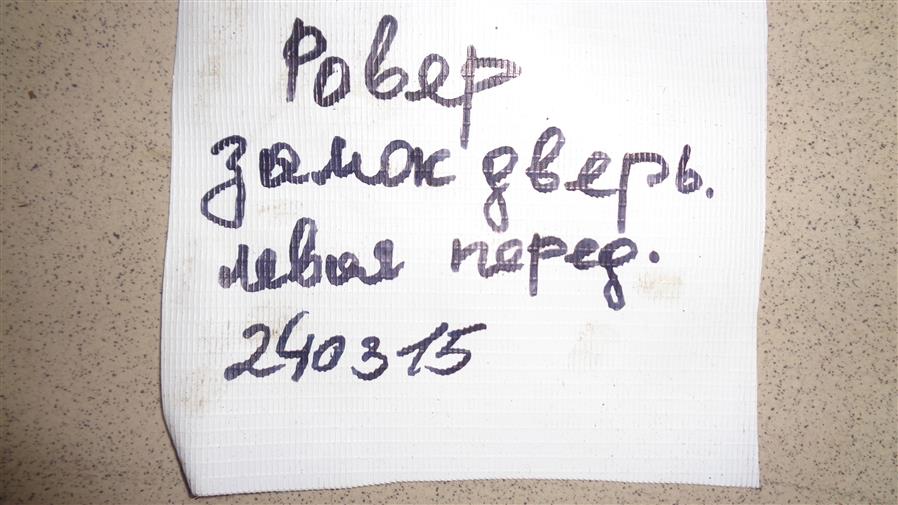 Ровер
замок дверь.
левая перед.
240315